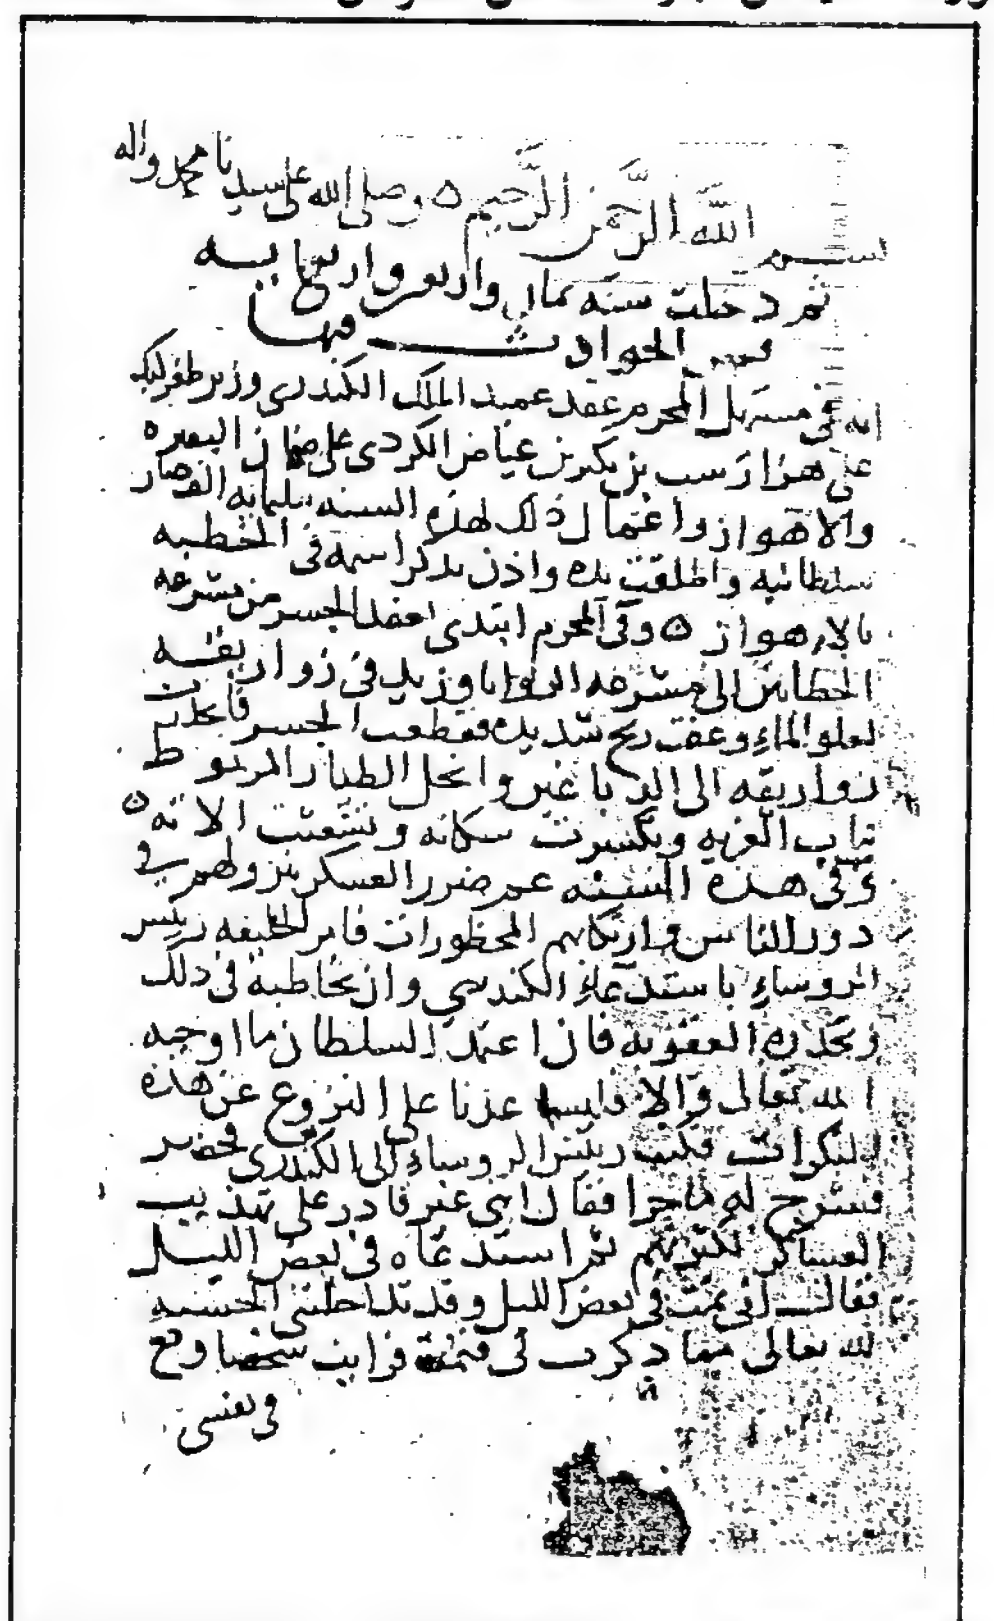 بسم الله الرحمن الرحيم ه وصلى الله على سيدنا محمد واله
ثم دخلت سنه ثمان واربعين واربعمائه
فمن الحوادث فيها
انه في مستهل المحرم عقد عميد الملك الكندري وزير طغرلبك
على هزارسب بن بكر بن عياض الكردي على ضمان البصره
والاهواز واعمال ذلك لهذه السنه بثلثمائه الف دينار
سلطانيه واطلقت يده واذن بذكر اسمه في الخطبه
بالاهواز ه وفي المحرم ابتدى بعقد الجسر من مشرعه
الحطابين الى مشرعه الروايا وزيد في زواريقه
لعلو الماء وعصفت ريح شديده فقطعت الجسر فانحدرت
زواريقه الى الدباغين وانحل الطيار المربوط
بباب الغربه وتكسرت سكانه وتشعثت الاته ه
وفي هذه السنه عم ضرر العسكر بنزولهم في
دور الناس وارتكابهم المحظورات فامر الخليفه رئيس
الروساء باستدعاء الكندري وان يخاطبه في ذلك
ويحذره العقوبه فان اعتمد السلطان ما اوجبه
الله تعالى والا فليساعدنا على النزوح عن هذه
المنكرات فكتب رئيس الروساء الى الكندري فحضر
فشرح له ما جرا فقال اني غير قادر على تهذيب
العساكر لكثرتهم ثم استدعاه في بعض الليل
فقال اني نمت في بعض الليل وقد تداخلتني الخشيه
لله تعالى مما ذكرت لي فنمت فرايت شخصا وقع
في نفسي